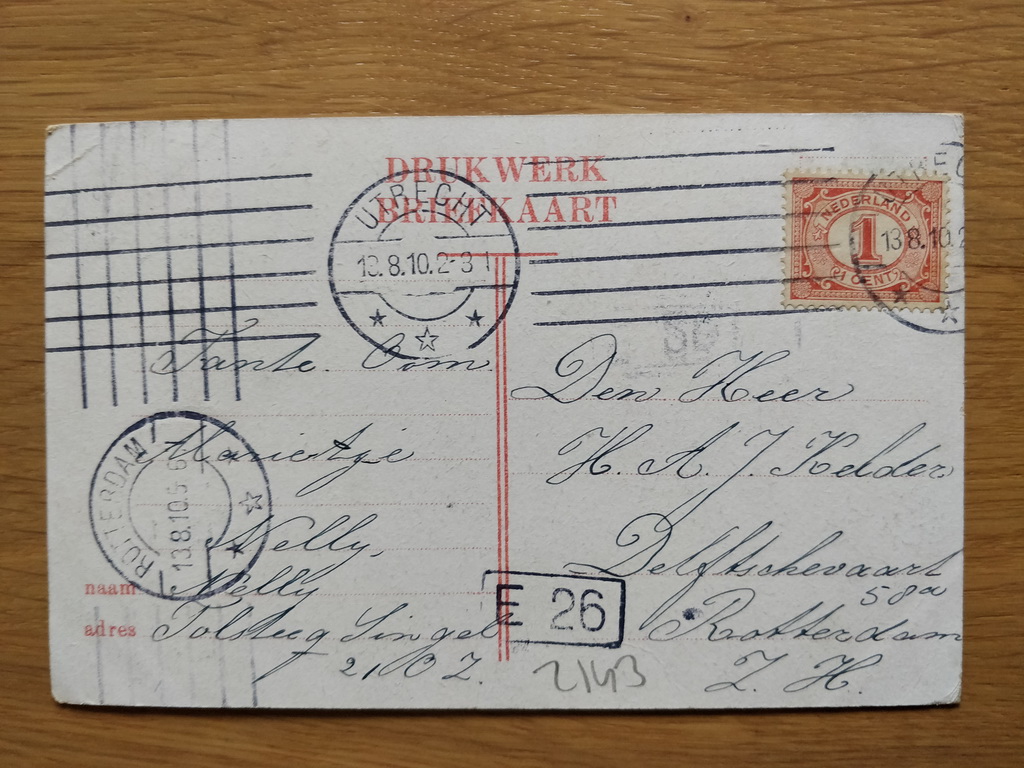 DRUKWERK
BRIEFKAART
UTRECHT
13.8.10.2-3
NEDERLAND
1
CENT
13.8.10.2
Tante. Oom
Marietje
Nelly,
Nelly
naam
adres
Tolsteeg Singel
21 O Z.
ROTTERDAM
13.8.10.5-6
Den Heer
H. A. J. Kelder
Delftschevaart
58a
Rotterdam
Z. H.
E 26
2143